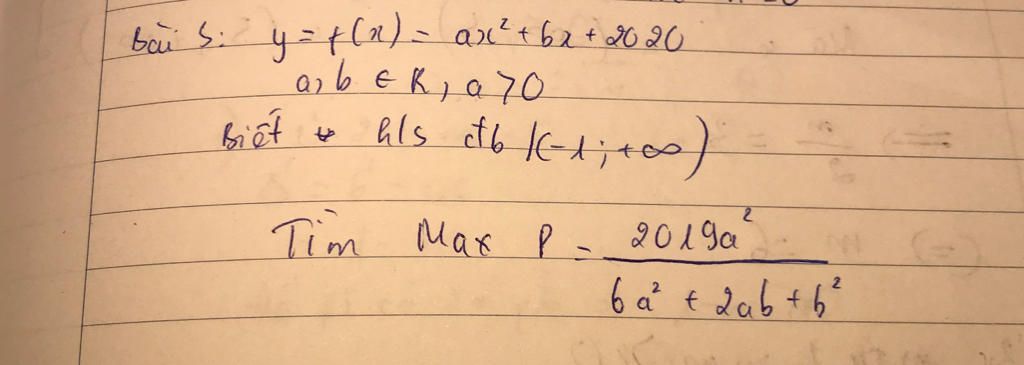 Bài 5: y = f(x) = ax² + bx + 2020
a, b ∈ R, a > 0
Biết h/s đb /(-1; +∞)
Tìm Max P = 2019a² / (6a² + 2ab + b²)